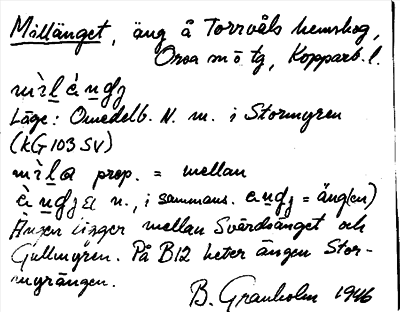 Millänget, äng å Torrvåls hemskog,
Orsa sn o tg, Kopparb. l.
Läge: Omedelb. N. m. i Stormyren
(kG 103 SV)
prep. = mellan
n., i sammans. = äng(en)
Ängen ligger mellan Svärdsänget och
Gullmyren. På B12 heter ängen Stor-
myrängen.
B. Granholm 1946